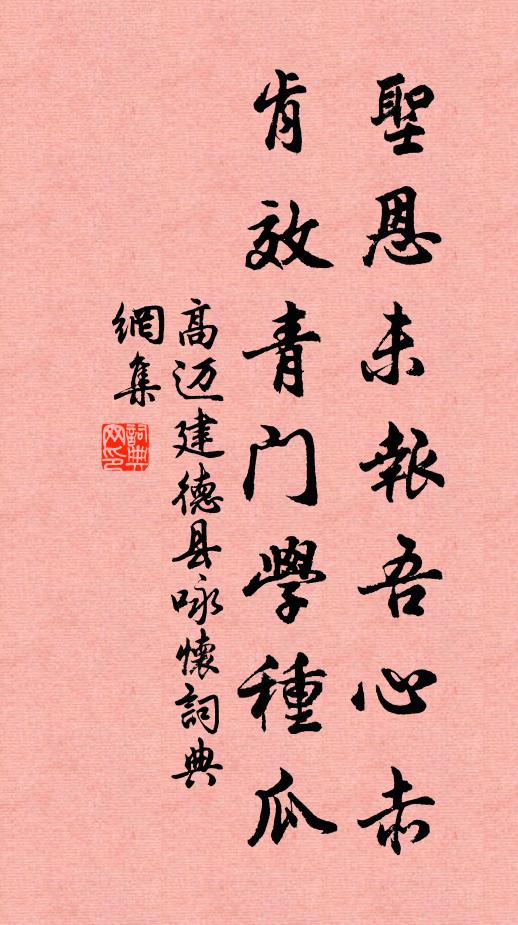 聖恩未報吾心赤
肯效青门學種瓜
高迈建德县咏懷詞典
網集
詞典
网印